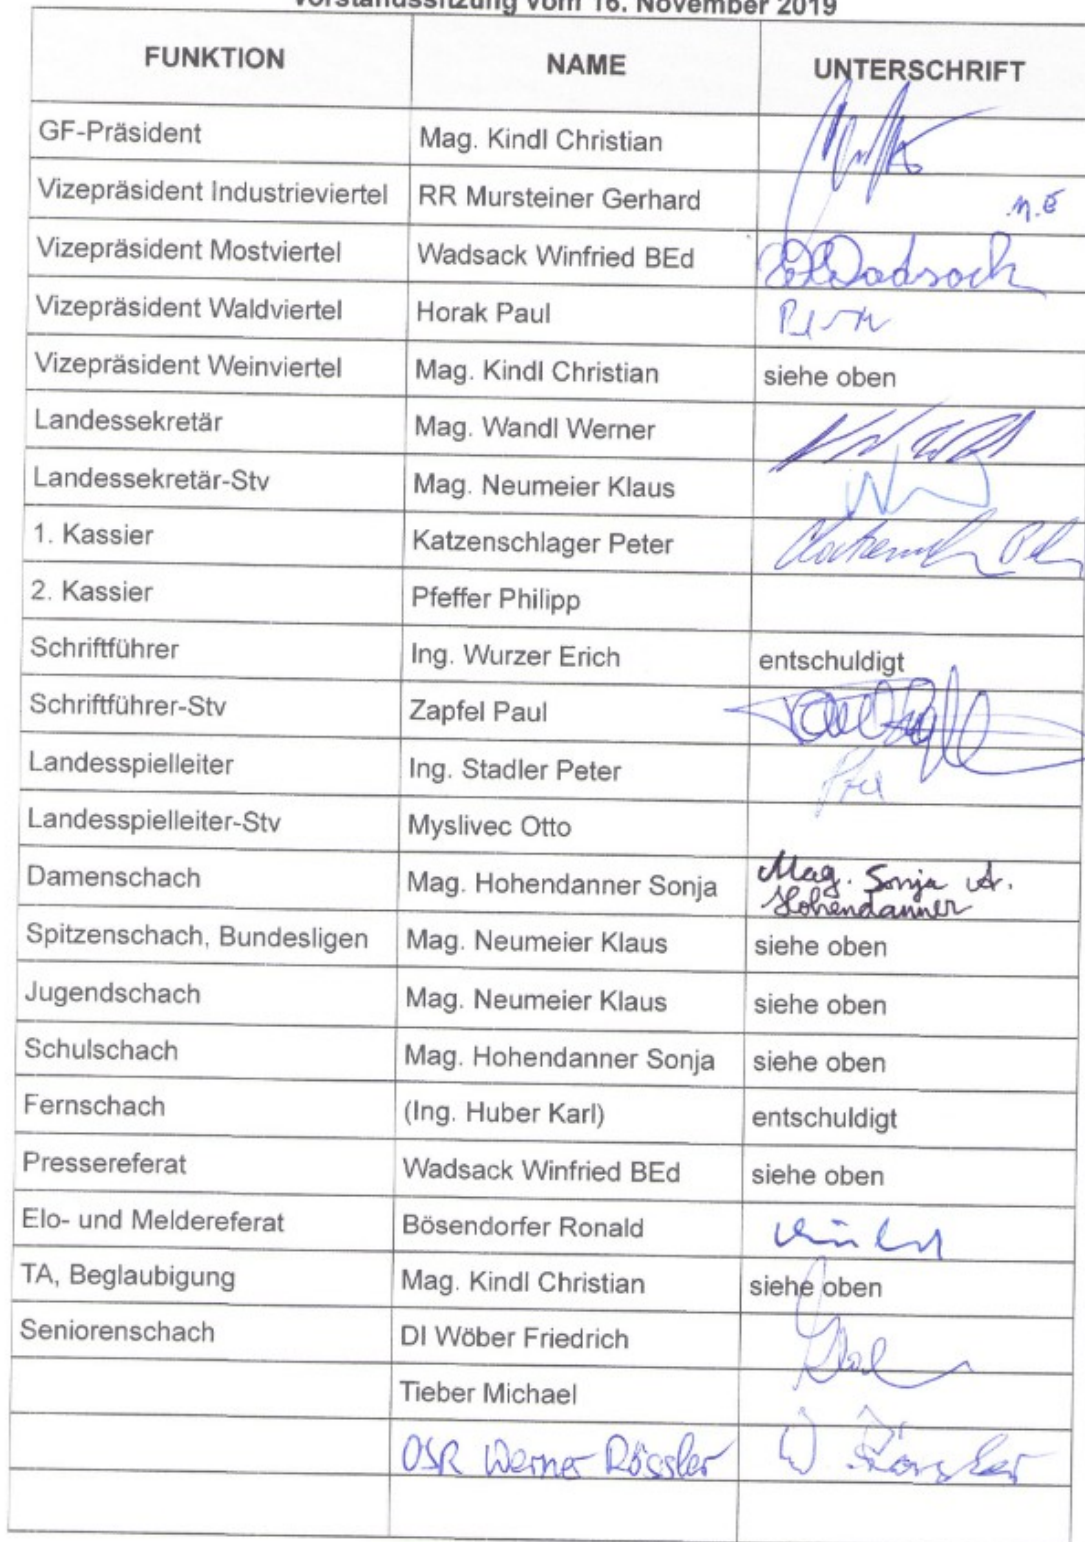 Vorstandssitzung vom 16. November 2019
FUNKTION NAME UNTERSCHRIFT
GF-Präsident Mag. Kindl Christian
Vizepräsident Industrieviertel RR Mursteiner Gerhard
Vizepräsident Mostviertel Wadsack Winfried BEd Wadsack
Vizepräsident Waldviertel Horak Paul
Vizepräsident Weinviertel Mag. Kindl Christian siehe oben
Landessekretär Mag. Wandl Werner
Landessekretär-Stv Mag. Neumeier Klaus
1. Kassier Katzenschlager Peter
2. Kassier Pfeffer Philipp
Schriftführer Ing. Wurzer Erich entschuldigt
Schriftführer-Stv Zapfel Paul
Landesspielleiter Ing. Stadler Peter
Landesspielleiter-Stv Myslivec Otto
Damenschach Mag. Hohendanner Sonja Mag. Sonja A.
Hohendanner
Spitzenschach, Bundesligen Mag. Neumeier Klaus siehe oben
Jugendschach Mag. Neumeier Klaus siehe oben
Schulschach Mag. Hohendanner Sonja siehe oben
Fernschach (Ing. Huber Karl) entschuldigt
Pressereferat Wadsack Winfried BEd siehe oben
Elo- und Meldereferat Bösendorfer Ronald
TA, Beglaubigung Mag. Kindl Christian siehe oben
Seniorenschach DI Wöber Friedrich
Tieber Michael
OSR Werner Rössler W. Rössler